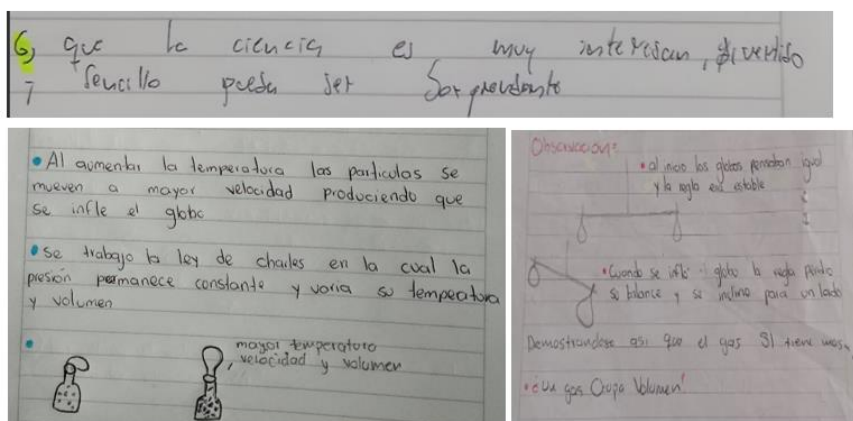 6) que la ciencia es muy interesan, divertido
y sencillo puede ser Sorprendente
• Al aumentar la temperatura las particulas se
mueven a mayor velocidad produciendo que
se infle el globo
• se trabajo la ley de charles en la cual la
presión permanece constante y varia su tempeatura
y volumen
mayor temperatura
, velocidad y volumen
Observación:
• al inicio los globos pensaban igual
y la regla era estable
• Cuando se infló el globo la regla perdio
su balance y se inclino para un lado
Demostrandose asi que el gas SI tiene masa
• ¿Un gas Ocupa Volumen?